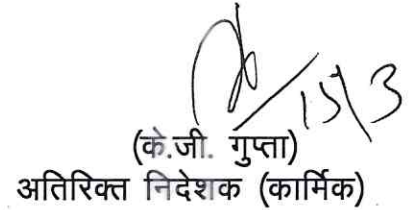 15/3
(के.जी. गुप्ता)
अतिरिक्त निदेशक (कार्मिक)